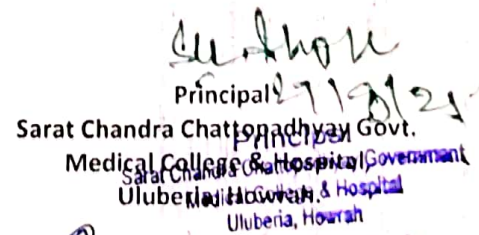 Principal
Sarat Chandra Chattopadhyay Govt.
Medical College & Hospital,
Uluberia, Howrah.
Principal
Sarat Chandra Chattopadhyay Government
Medical College & Hospital
Uluberia, Howrah